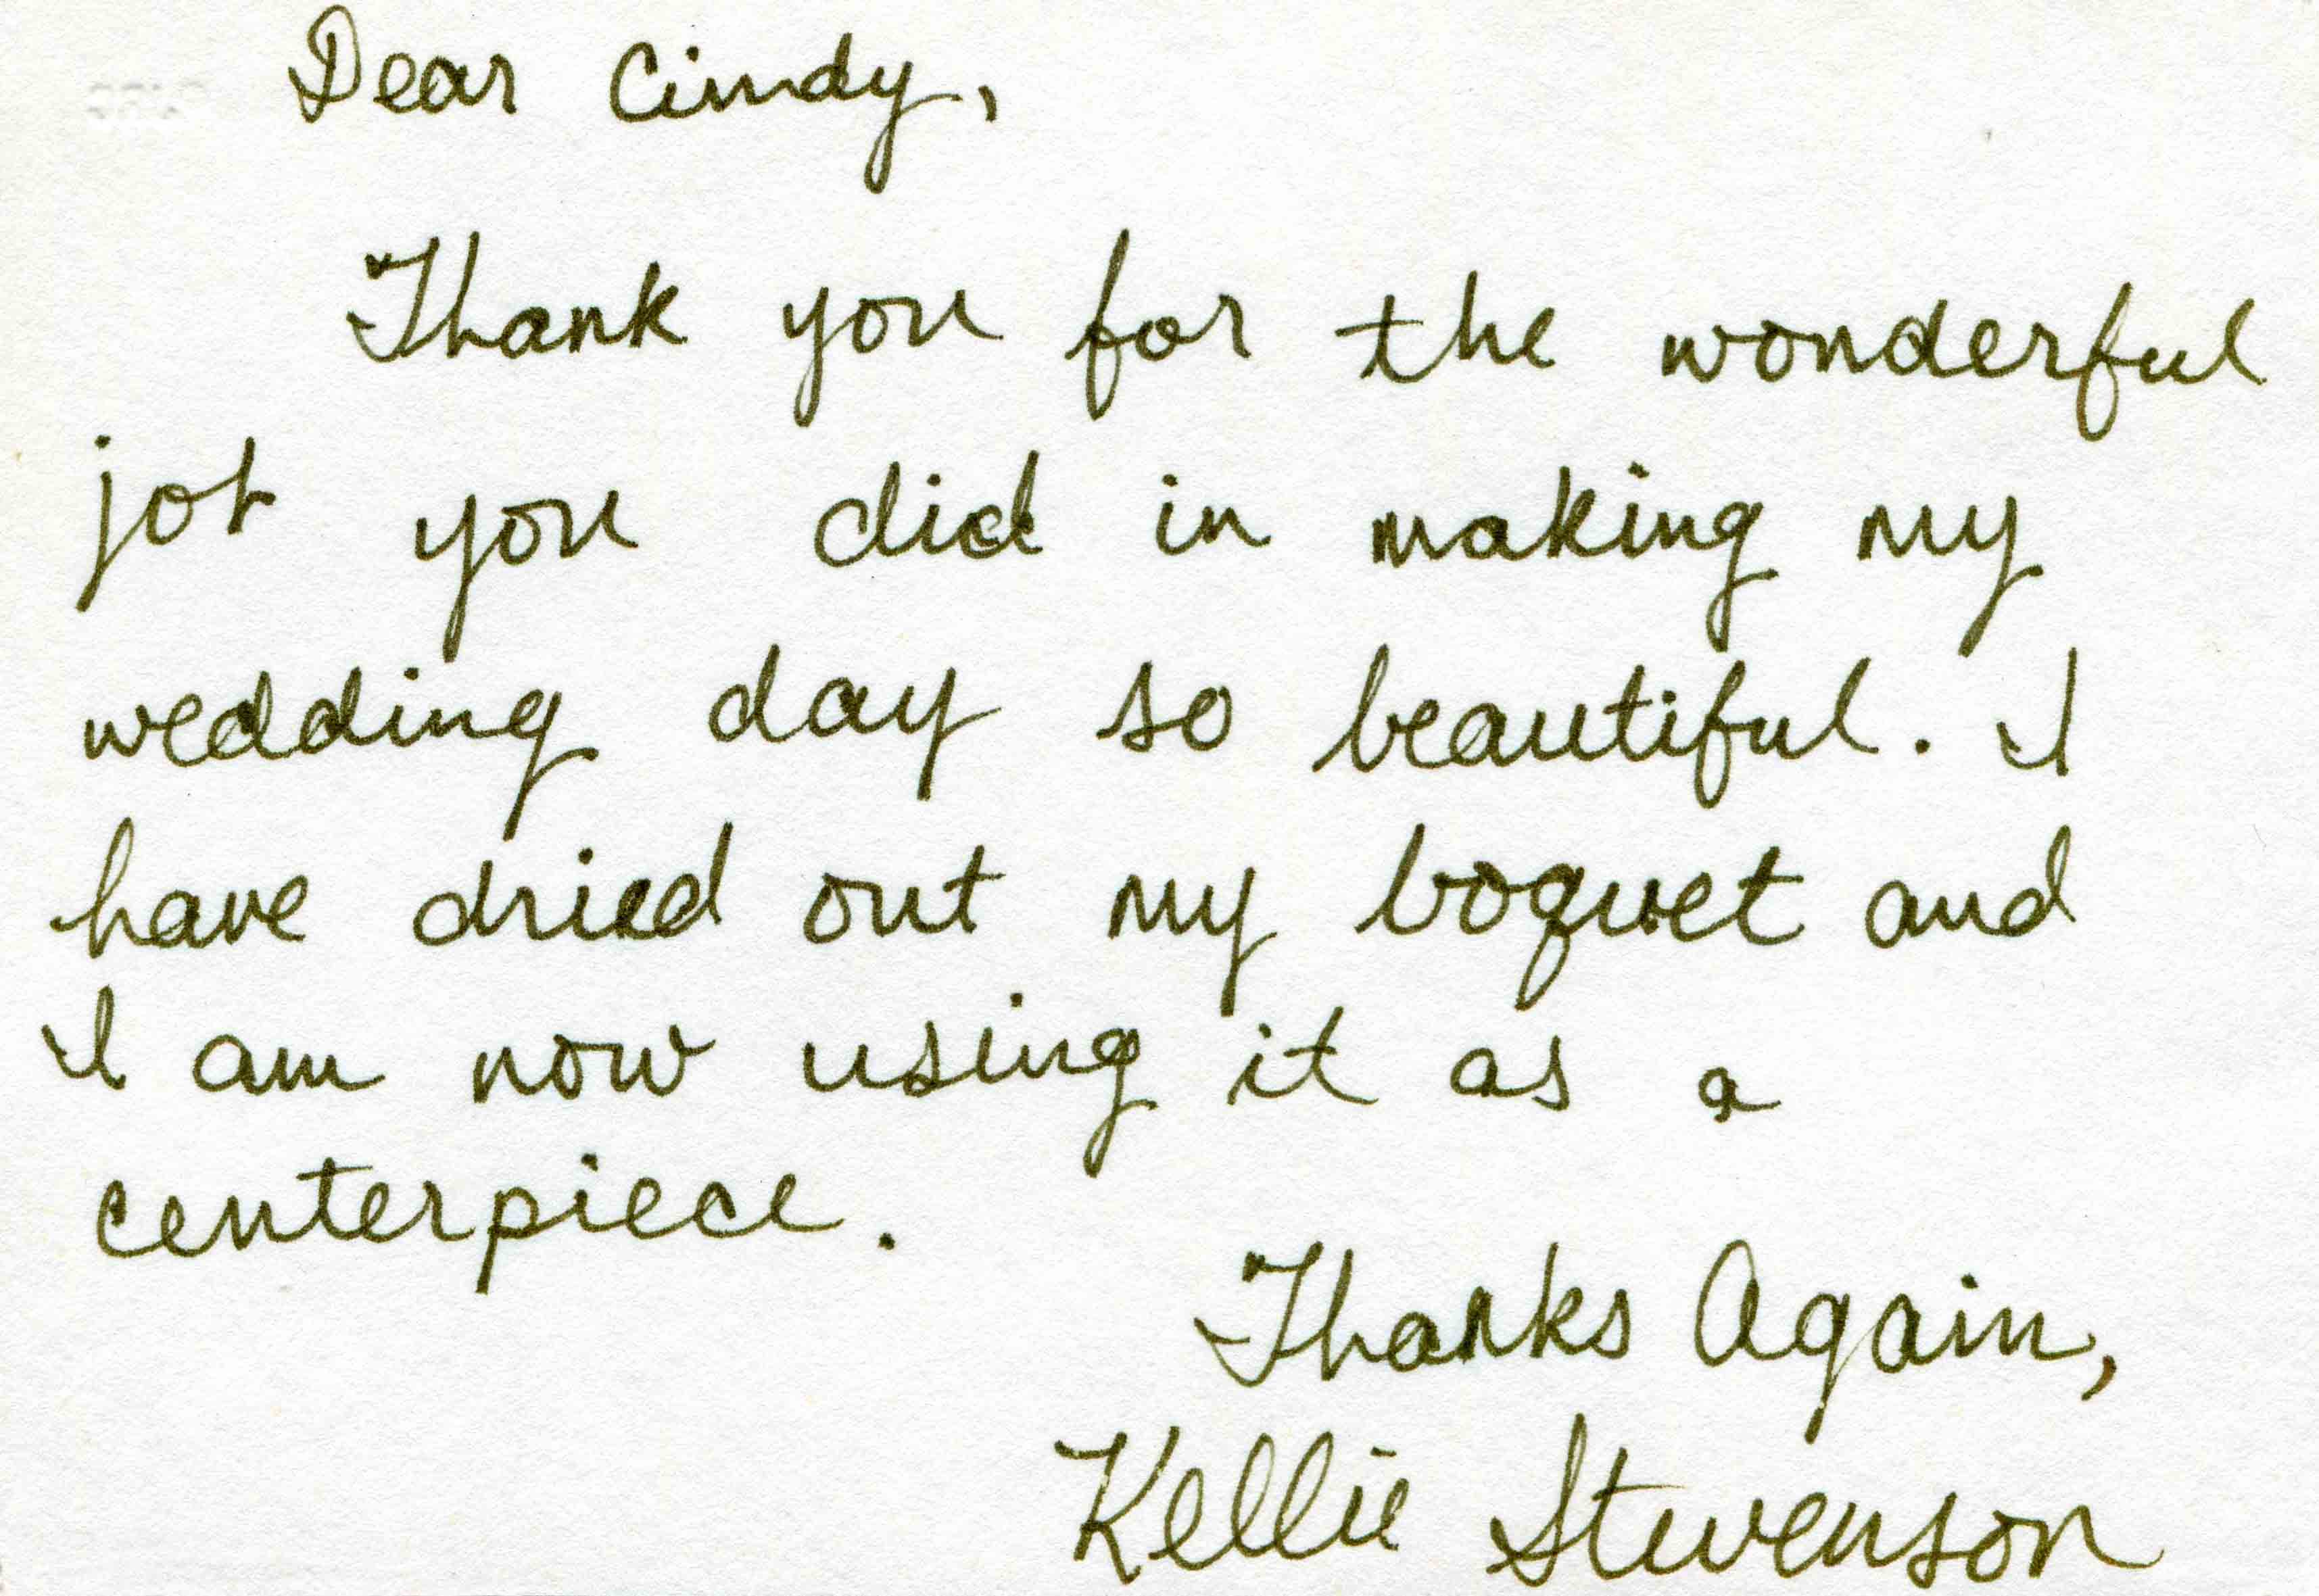 Dear Cindy,
Thank you for the wonderful
job you did in making my
wedding day so beautiful. I
have dried out my boquet and
I am now using it as a
centerpiece.
Thanks Again,
Kellie Stevenson